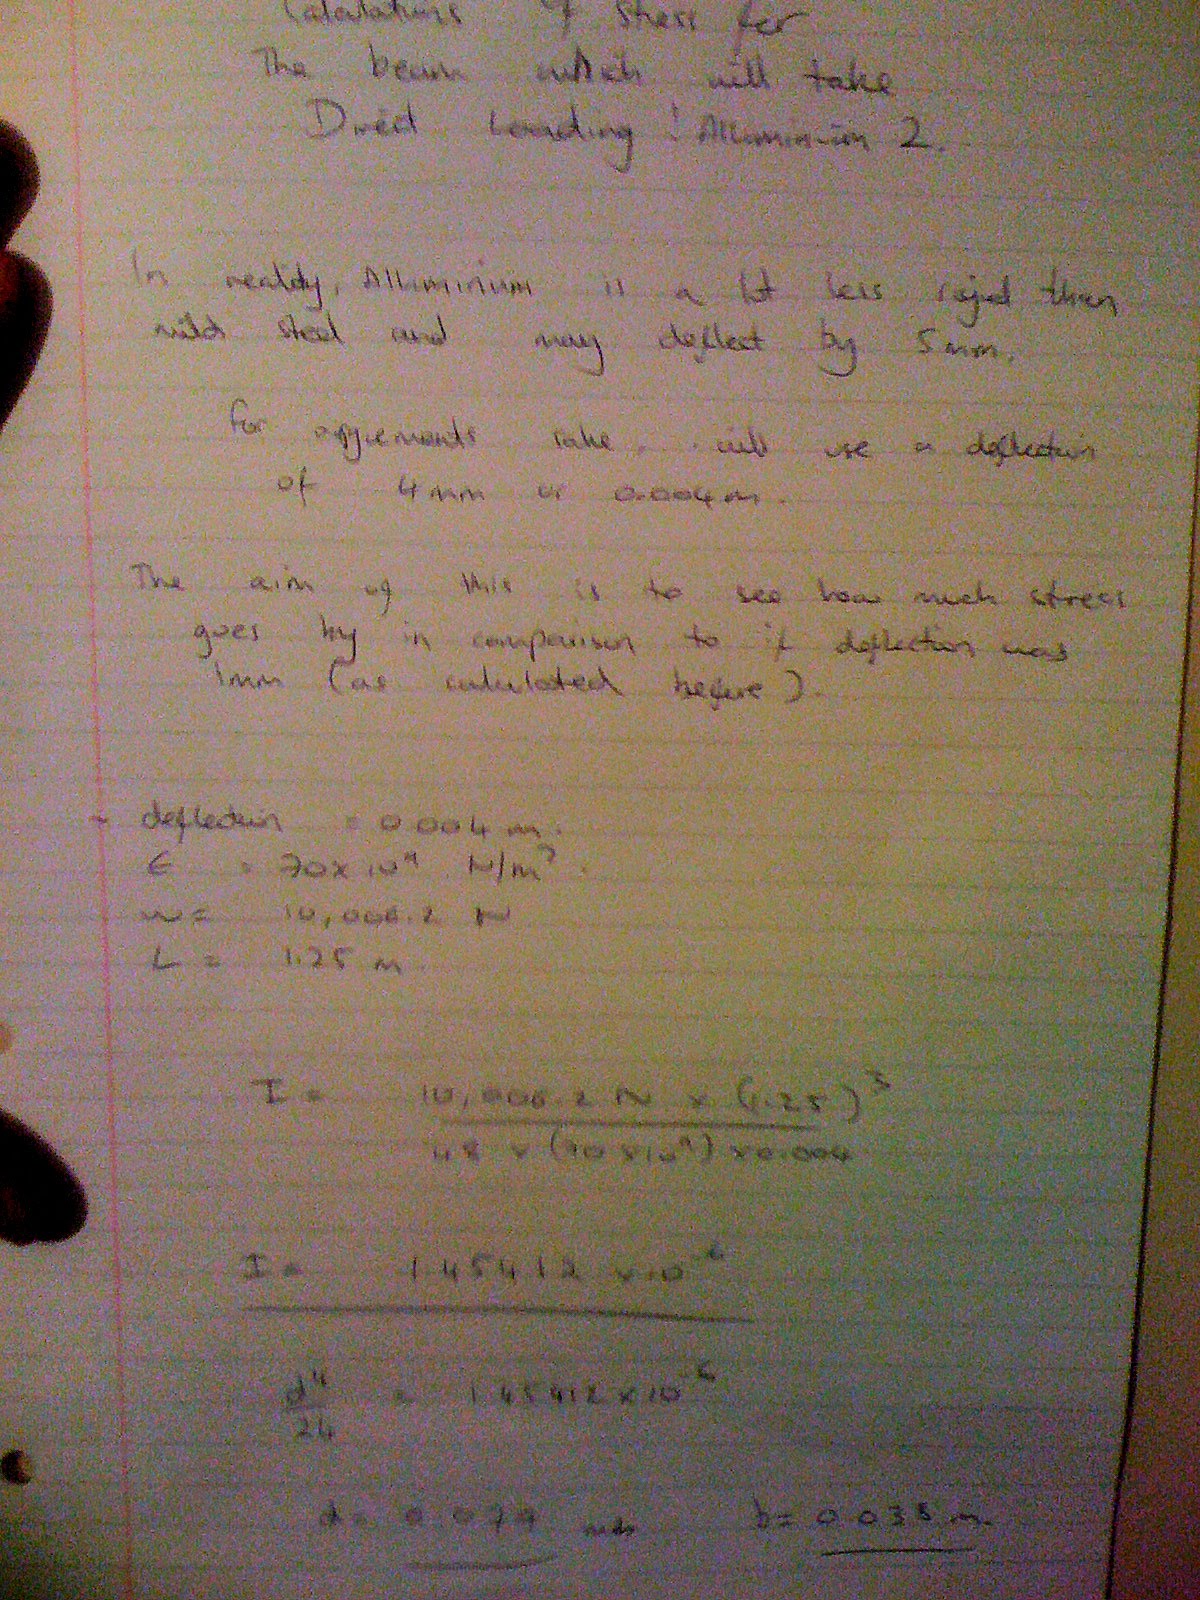 Calculations of stress for
The beam which will take
Direct Loading! Alluminium 2.
In reality, Alluminium is a lot less rigid then
mild steel and may deflect by 5mm.
for arguements sake will use a deflection
of 4mm or 0.004m.
The aim of this is to see how much stress
goes by in comparison to if deflection was
1mm (as calculated before).
deflection = 0.004 m.
E = 70x10⁹ N/m²
w = 10,006.2 N
L = 1.25 m.
I = 10,006.2 N x (1.25)³
48 x (70x10⁹) x 0.004
I = 1.45412 x 10⁻⁶
d⁴ = 1.45412 x 10⁻⁶
24
d = 0.077 b = 0.038 m.